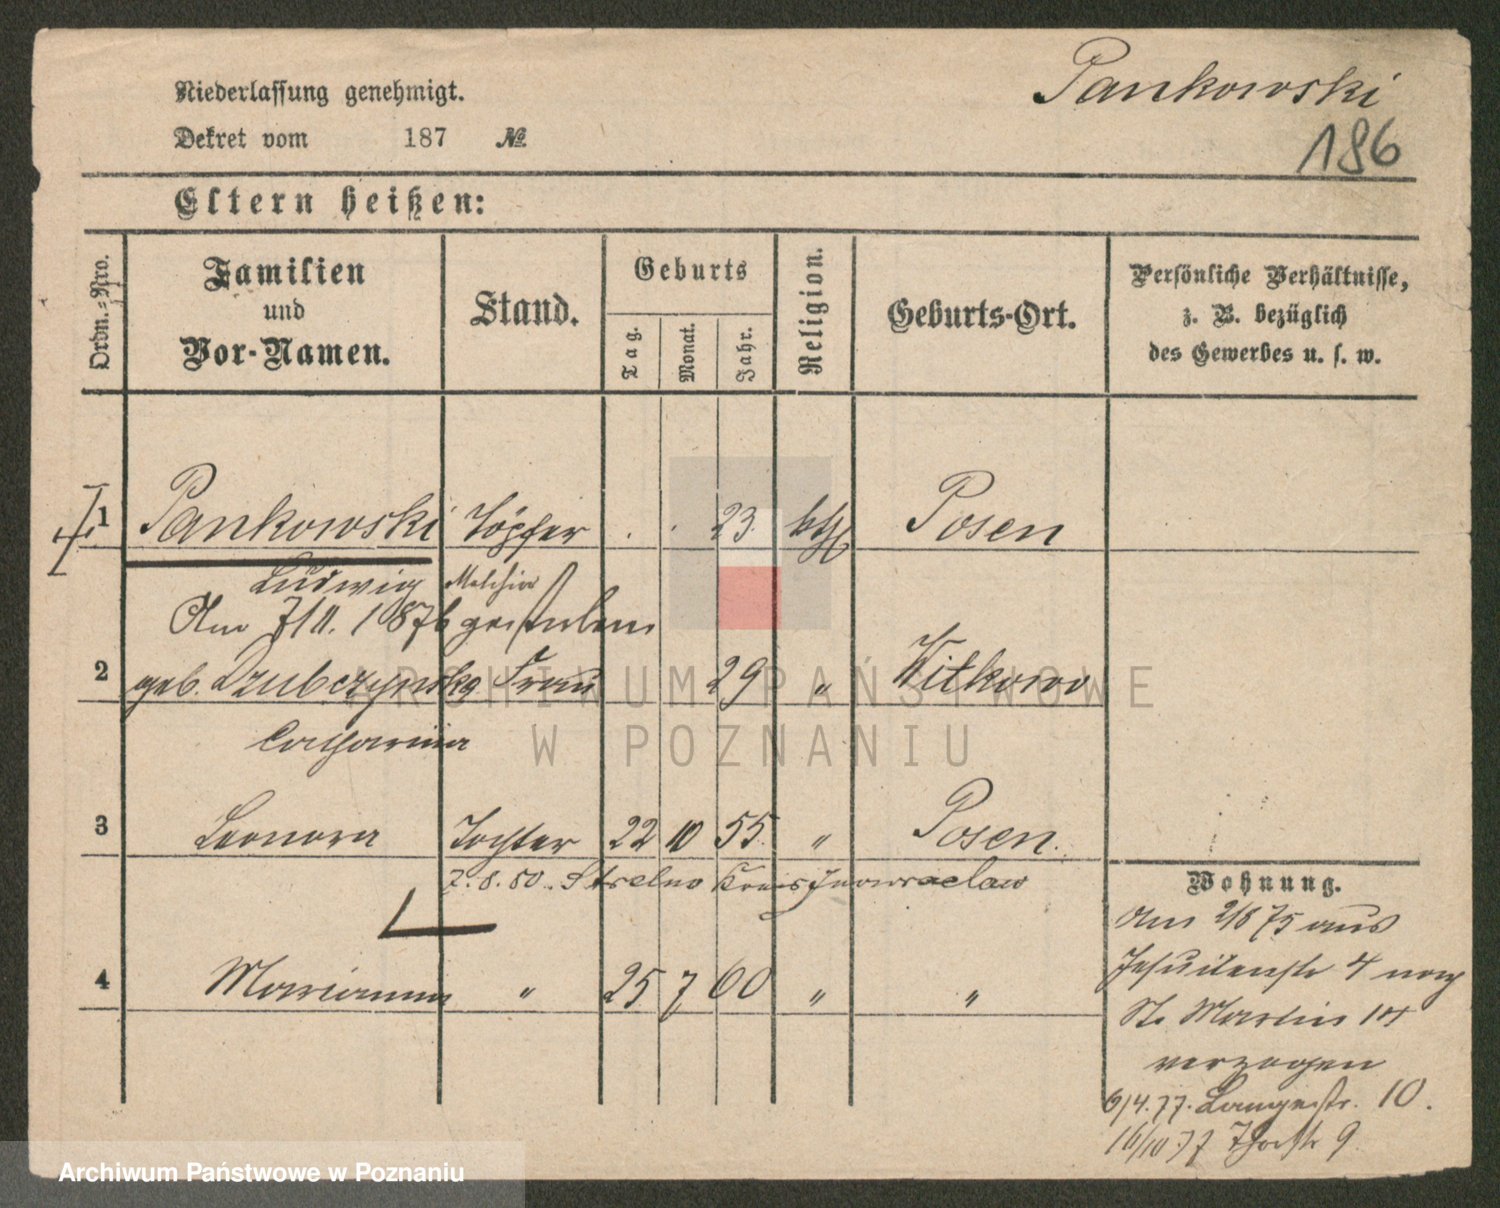 Pankowski
186
Niederlassung genehmigt.
Dekret vom 187 №
Eltern heißen:
Ordn.-Nro.
Familien und Vor-Namen.
Stand.
Geburts
Tag. Monat. Jahr.
Religion.
Geburts-Ort.
Persönliche Verhältnisse,
z. B. bezüglich
des Gewerbes u. s. w.
1 Pankowski Töpfer . . 23. kth Posen
Ludwig Melchior
Am 7/11. 1876 gestorben
2 geb. Dzubczynska Frau 29 " Witkowo
Catharina
3 Leonora Tochter 22 10 55. " Posen.
7.8.80. Strelno Kreis Inowraclaw
4 Marianna " 25 7 60 " "
Wohnung.
Am 2/8 75 aus
Jesuitenstr 4 nach
St. Martin
verzogen
6/4.77. Langestr. 10.
16/10 77 Thorstr 9
ARCHIWUM PAŃSTWOWE
W POZNANIU
Archiwum Państwowe w Poznaniu